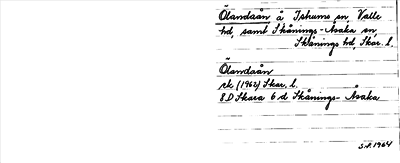 Ölandaån å Ishums sn, Valle
hd, samt Skånings-Åsaka sn,
Skånings hd, Skar. l.
Ölandaån
rk (1962) Skar. l.
8D Skara 6 d Skånings-Åsaka
S.F. 1964